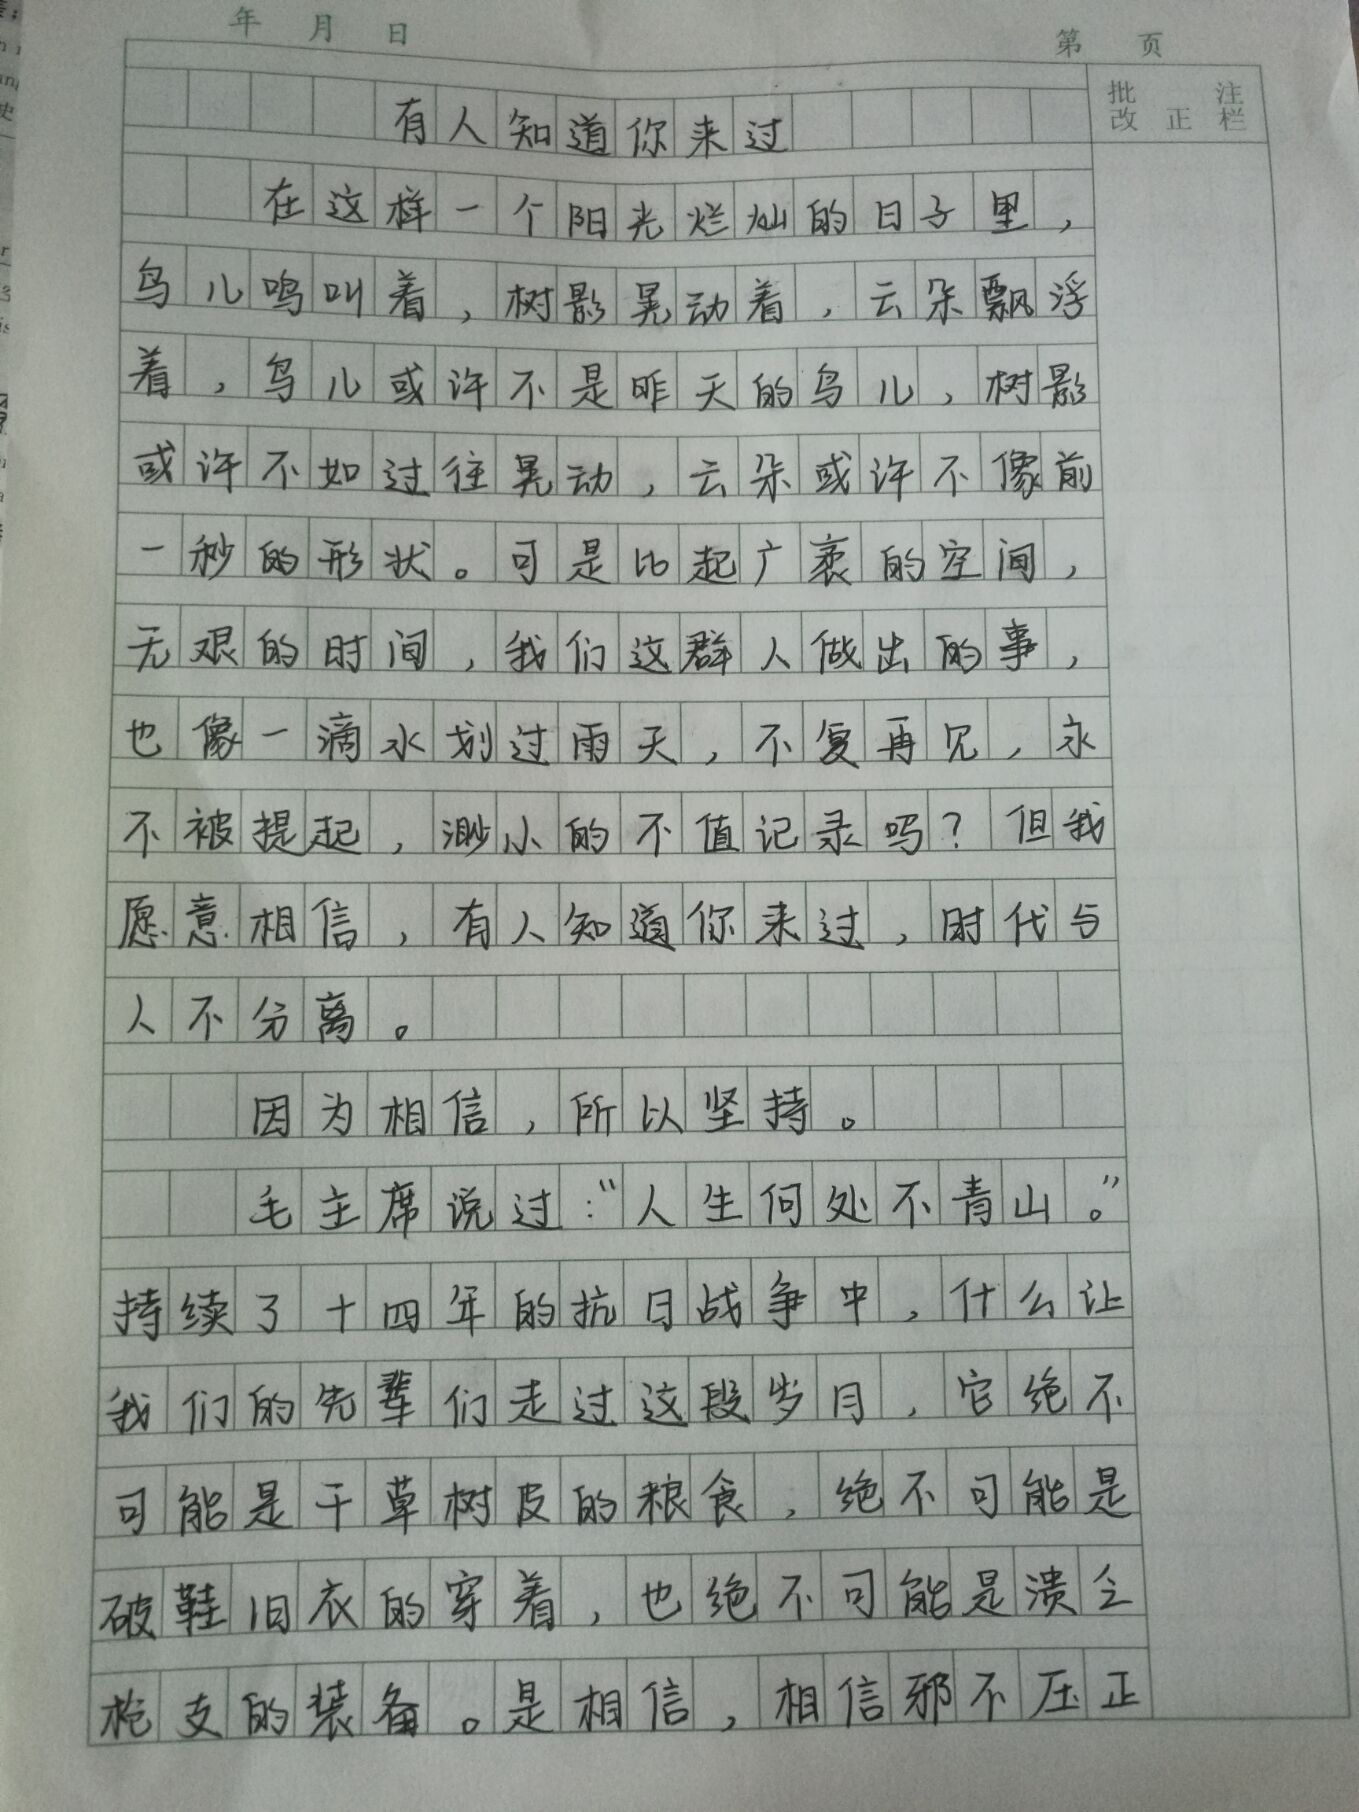 年 月 日
第 页
批 注
改 正 栏
有人知道你来过
在这样一个阳光烂灿的日子里，
鸟儿鸣叫着，树影晃动着，云朵飘浮
着，鸟儿或许不是昨天的鸟儿，树影
或许不如过往晃动，云朵或许不像前
一秒的形状。可是比起广袤的空间，
无艰的时间，我们这群人做出的事，
也像一滴水划过雨天，不复再见，永
不被提起，渺小的不值记录吗？但我
愿意相信，有人知道你来过，时代与
人不分离。
因为相信，所以坚持。
毛主席说过：“人生何处不青山。”
持续了十四年的抗日战争中，什么让
我们的先辈们走过这段岁月，它绝不
可能是干草树皮的粮食，绝不可能是
破鞋旧衣的穿着，也绝不可能是溃乏
枪支的装备。是相信，相信邪不压正